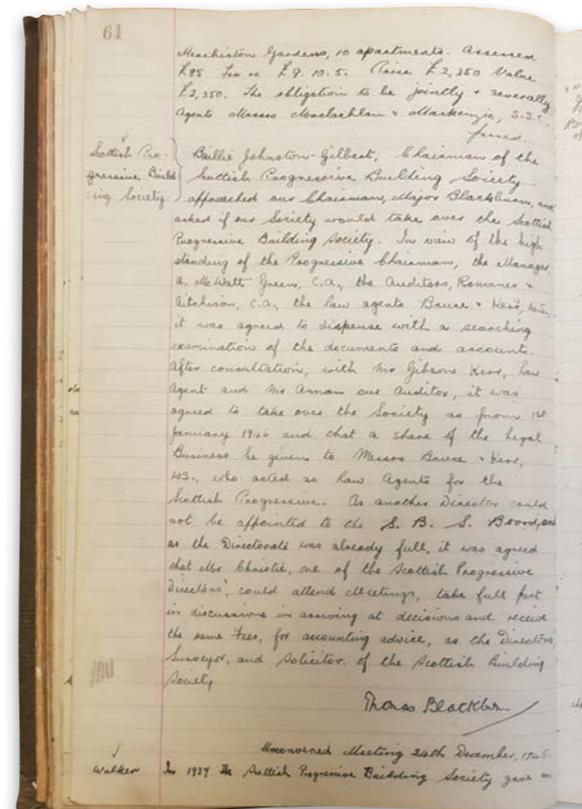 61
Merchiston Gardens, 10 apartments. Assessed
£85 Feu £9. 10. 5. Raise £2,350 Value
£2,350. The obligation to be jointly & severally
Agents Messrs Maclachlan & Mackenzie, S.S.C.
passed.
Scottish Pro-
gressive Build-
ing Society.
Baillie Johnston-Gilbert, Chairman of the
Scottish Progressive Building Society
approached our Chairman, Major Blackburn, and
asked if our Society would take over the Scottish
Progressive Building Society. In view of the high
standing of the Progressive Chairman, the Manager
McWatt Green, C.A., the Auditors, Romanes &
Aitchison, C.A., the Law agents Bruce & Kerr,
it was agreed to dispense with a searching
examination of the documents and accounts.
After consultation, with Mr Gibson Kerr, Law
Agent and Mr Annan our Auditor, it was
agreed to take over the Society as from 1st
January 1946 and that a share of the Legal
Business be given to Messrs Bruce & Kerr,
W.S., who acted as Law Agents for the
Scottish Progressive. As another Director could
not be appointed to the S. B. S. Board, and
as the Directorate was already full, it was agreed
that Mr Christie, one of the Scottish Progressive
Directors, could attend Meetings, take full part
in discussions in arriving at decisions and receive
the same Fees, for accounting advice, as the Directors,
Surveyor, and Solicitor, of the Scottish Building
Society
Thomas Blackburn
Unconvened Meeting 24th December, 1945
Walker
In 1937 The Scottish Progressive Building Society gave